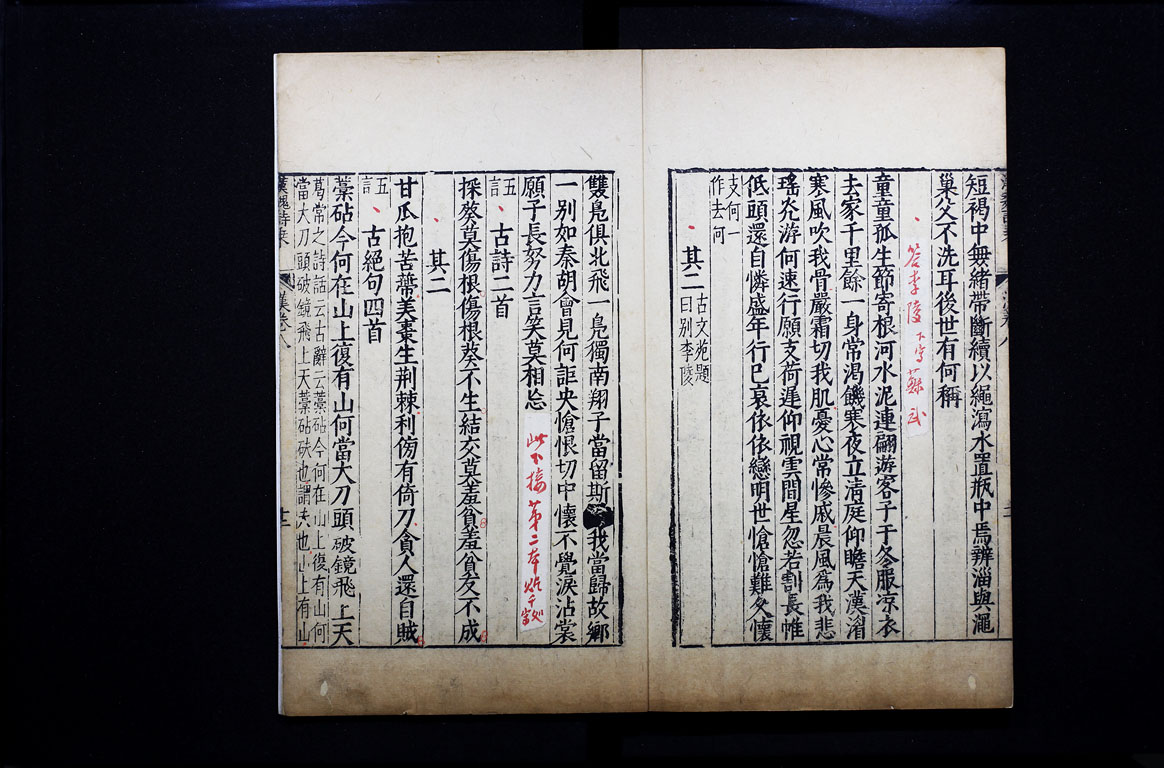 短褐中無緒帶斷續以繩瀉水置瓶中焉辨淄與澠
巢父不洗耳後世有何稱
答李陵 下字 蘇武
童童孤生節寄根河水泥連翩游客子于冬服涼衣
去家千里餘一身常渴饑寒夜立清庭仰瞻天漢湄
寒風吹我骨嚴霜切我肌憂心常慘戚晨風爲我悲
瑤光游何速行願支荷遲仰視雲間星忽若割長帷
低頭還自憐盛年行已衰依依戀明世愴愴難久懷
支何一
作去何
其二 古文苑題
曰别李陵
雙鳧俱北飛一鳧獨南翔子當留斯 我當歸故鄉
一別如秦胡會見何詎央愴恨切中懷不覺淚沾裳
願子長努力言笑莫相忘
此下接第二本
古詩二首 五
言
採葵莫傷根傷根葵不生結交莫羞貧羞貧友不成
其二
甘瓜抱苦蔕美棗生荆棘利傍有倚刀貪人還自賊
古絕句四首 五
言
藁砧今何在山上復有山何當大刀頭破鏡飛上天
葛常之詩話云古辭云藁砧今何在山上復有山何
當大刀頭破鏡飛上天藁砧砆也謂夫也山上有山
漢魏詩乘
漢卷八